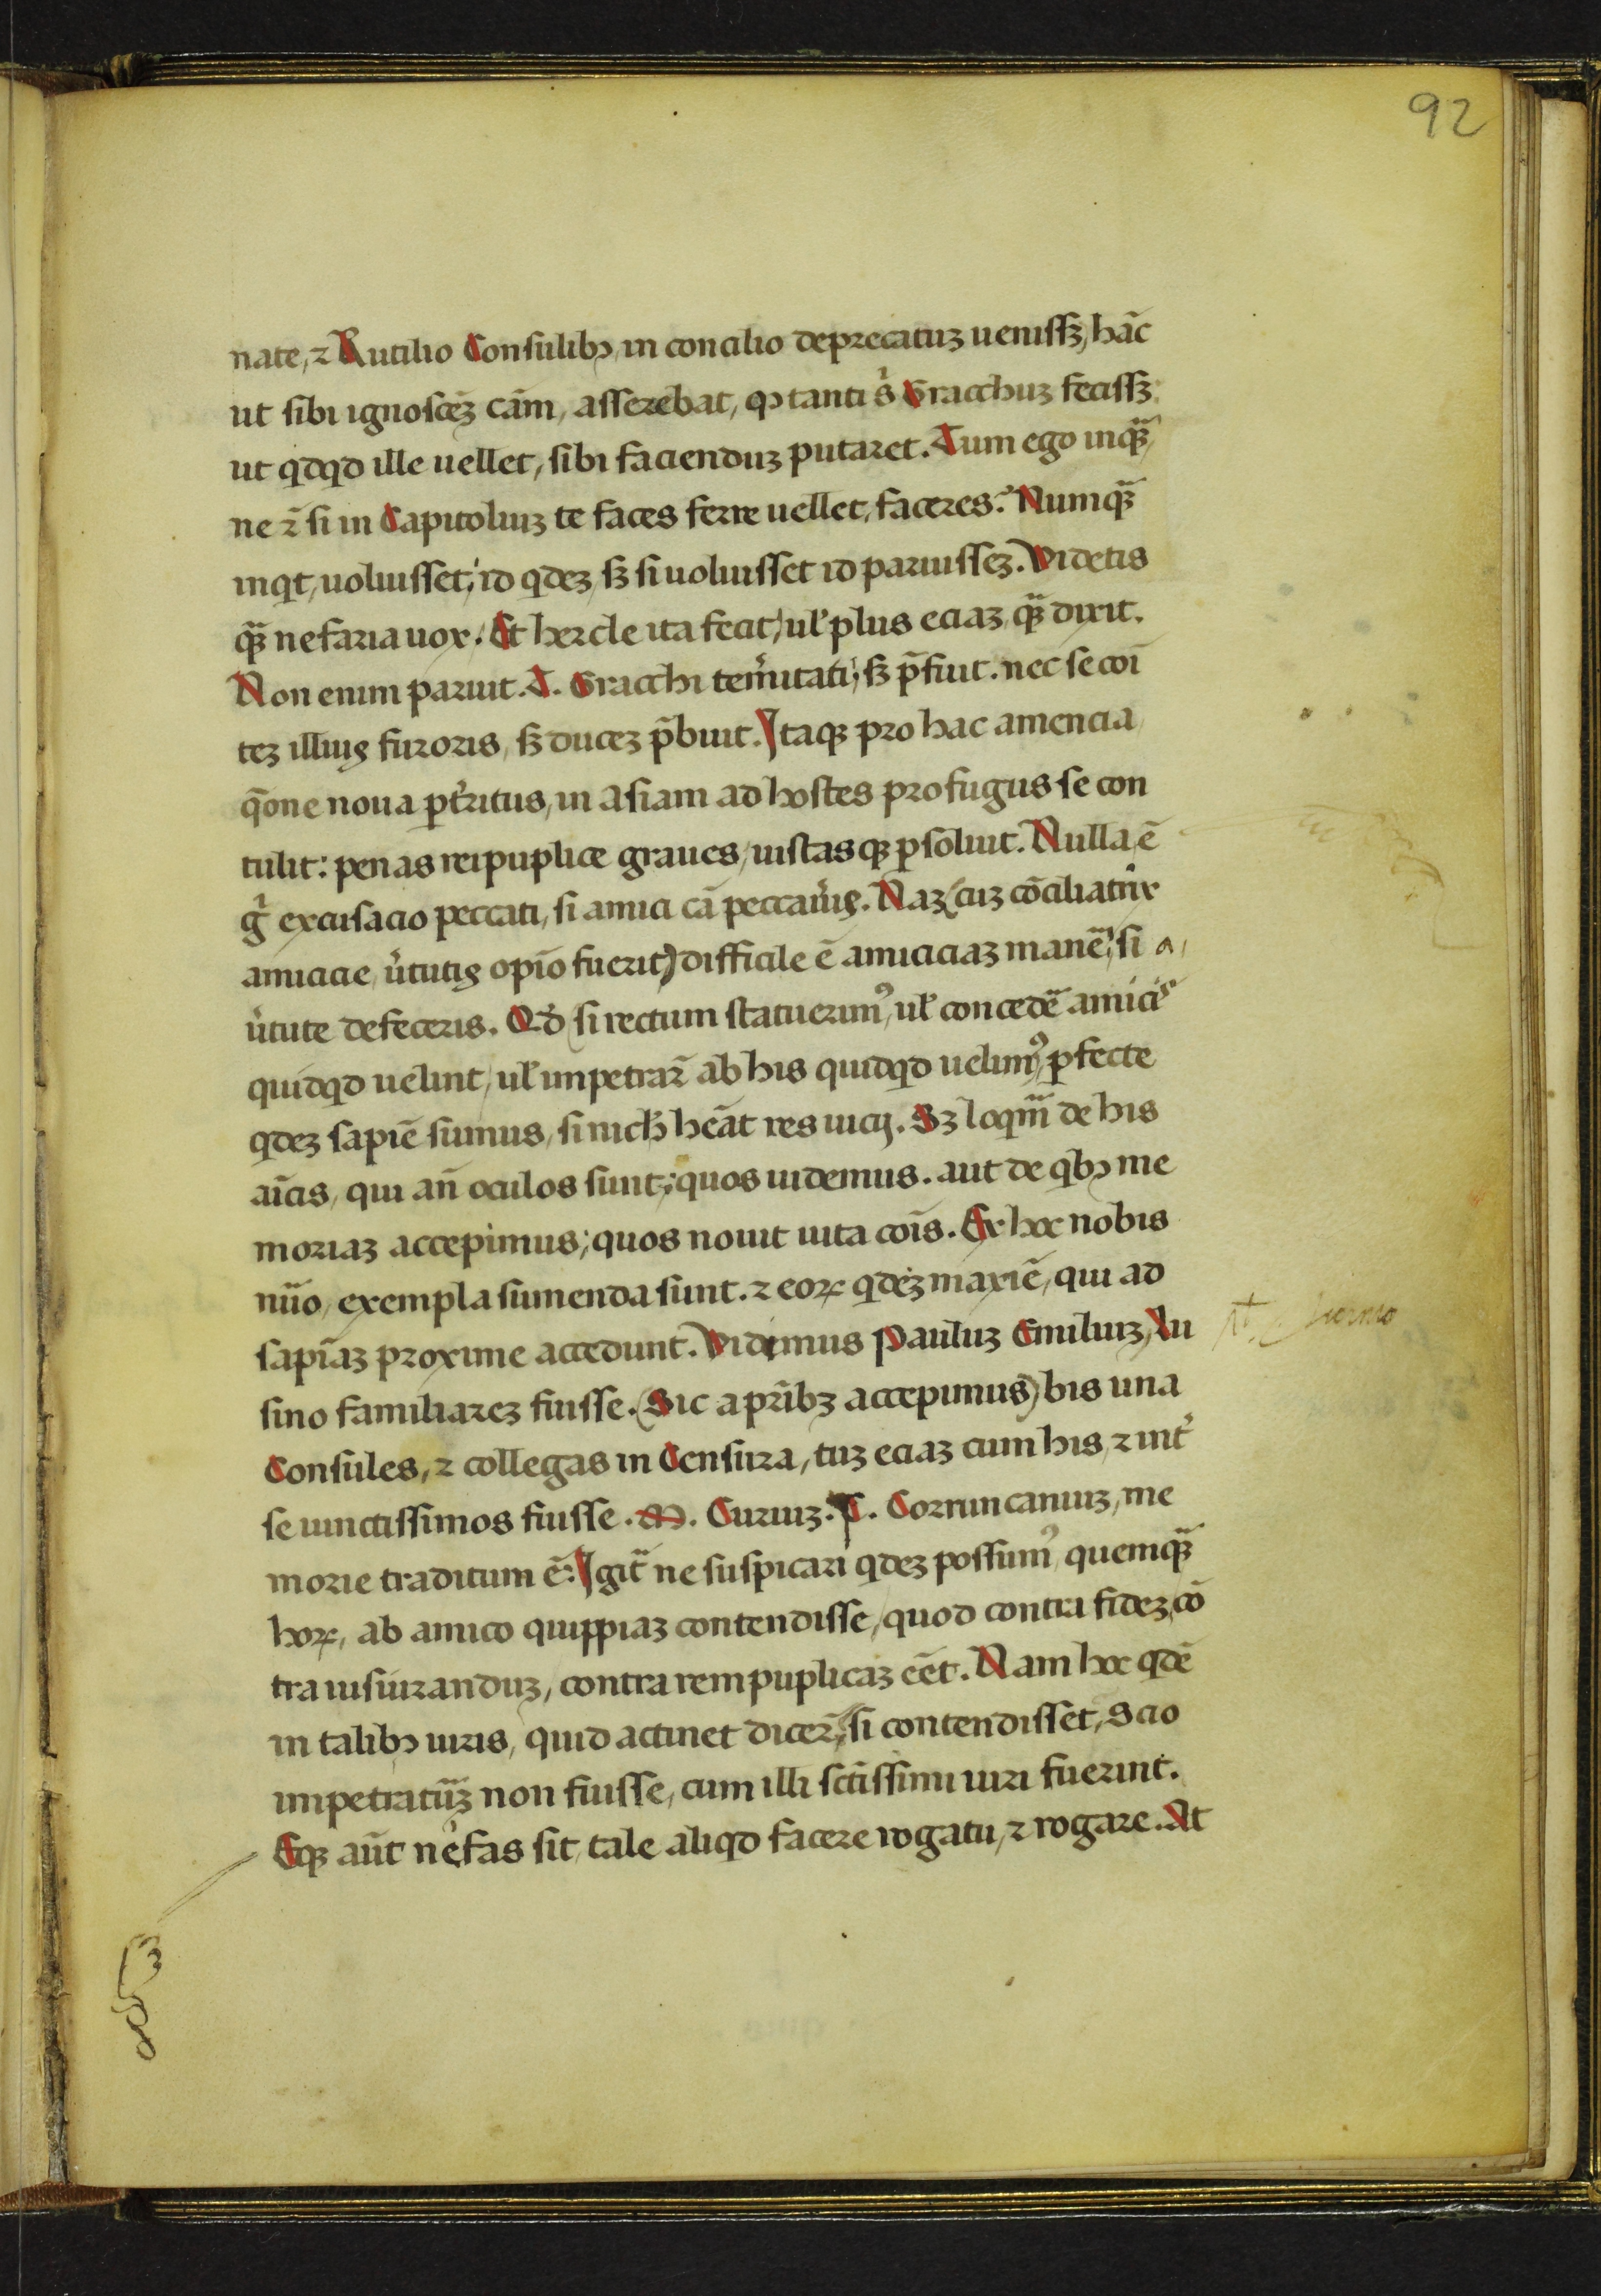 92
nate, ⁊ Rutilio Consulibꝫ, in concilio deprecatuꝫ uenissꝫ, hāc
ut sibi ignoscēꝫ cām, asserebat, ꝙ tanti s̉ Gracchuꝫ fecissꝫ:
ut qdqd ille uellet, sibi facienduꝫ putaret. Tum ego inqꝫ̄,
ne ⁊̄ si in Capitoliuꝫ te faces ferre uellet, faceres? Numqꝫ̄
inqt, uoluisset; id qdeꝫ, sꝫ si uoluisset id paruisseꝫ. Videtis
qꝫ̄ nefaria uox. Et hercle ita fecit, ul̓ plus eciaꝫ, qꝫ̄ dixit.
Non enim paruit. T. Gracchi tem̉itati; sꝫ p̄fuit. nec se coī
teꝫ illiuꝰ furoris, sꝫ duceꝫ p̄buit. Itaqꝫ pro hac amencia
q̄one noua ꝑt̉ritus, in asiam ad hostes profugus se con
tulit: penas reipuplice graues, iustasqꝫ ꝑsoluit. Nulla, ē
g̉ excusacio peccati, si amici cā peccaủiꝰ. Naꝫ (cuꝫ cōciliatrix
amicicie, ủtutiꝰ opīo fuerit) difficile ē amiciciaꝫ manē̄; si a,
ủtute defeceris. Qd̉ (si rectum statuerimꝰ, ul̓ concedē̄ amicis
quidqd uelint, ul̓ impetrar̄ ab his quidqd uelimꝰ, ꝑfecte
qdeꝫ sapiē sumus, si nich̓ heāt res uicij. Sꝫ loqm̄̄ de his
aīcis, qui an̄ oculos sunt; quos uidemus. aut de qbꝫ me
moriaꝫ accepimus; quos nouit uita coīs. Ex hoc nobis
nūo, exempla sumenda sunt. ⁊ eoꝝ qdeꝫ maxiē, qui ad
sapīaꝫ proxime accedunt. Vidimus Pauluꝫ Emiliuꝫ, Lu
sino familiareꝫ fuisse. (Sic a prībꝫ accepimus) bis una
Consules, ⁊ collegas in Censura, tuꝫ eciaꝫ cum his, ⁊ int̉
se iunctissimos fuisse. M. Curiuꝫ. T. Corruncaniuꝫ, me
morie traditum ē: Igit̄ ne suspicari qdeꝫ possumꝰ, quemqꝫ̄
hoꝝ, ab amico quippiaꝫ contendisse, quod contra fideꝫ, cō
tra iusiuranduꝫ, contra rempuplicaꝫ eēt. Nam hoc qdē
in talibꝫ uiris, quid actinet dicer̄, si contendisset, Scio
impetratūꝫ non fuisse, cum illi sctīssimi uiri fuerint.
Eqꝫ aūt nefas sit, tale aliqd facere rogatu, ⁊ rogare. At